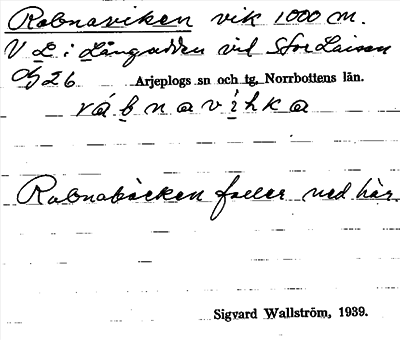 Rabnaviken vik 1000 m.
V L i Långudden vid Stor Laisan
26 Arjeplogs sn och tg, Norrbottens län.
rábnavíhka
Rabnabäcken faller ned här.
Sigvard Wallström, 1939.